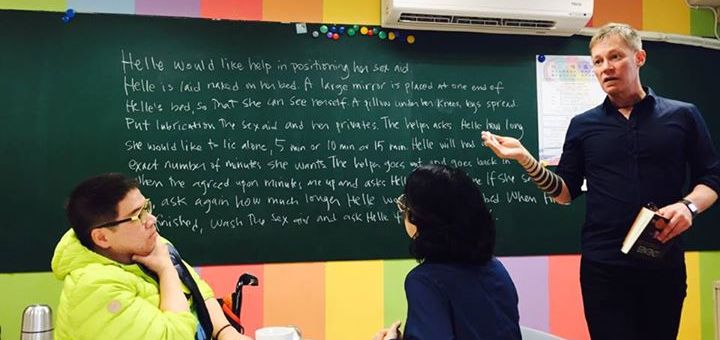 Helle would like help in positioning her sex aid.
Helle is laid naked on her bed. A large mirror is placed at one end of
Helle's bed, so that she can see herself. A pillow under her knees, legs spread.
Put lubrication the sex aid and her privates. The helper asks Helle how long
she would like to lie alone, 5 min or 10 min or 15 min. Helle will
exact number of minutes she wants. The helper goes out and goes back in
when the agreed upon minutes are up and asks if she
ask again how much longer Helle When
finished, wash the sex aid and ask Helle if